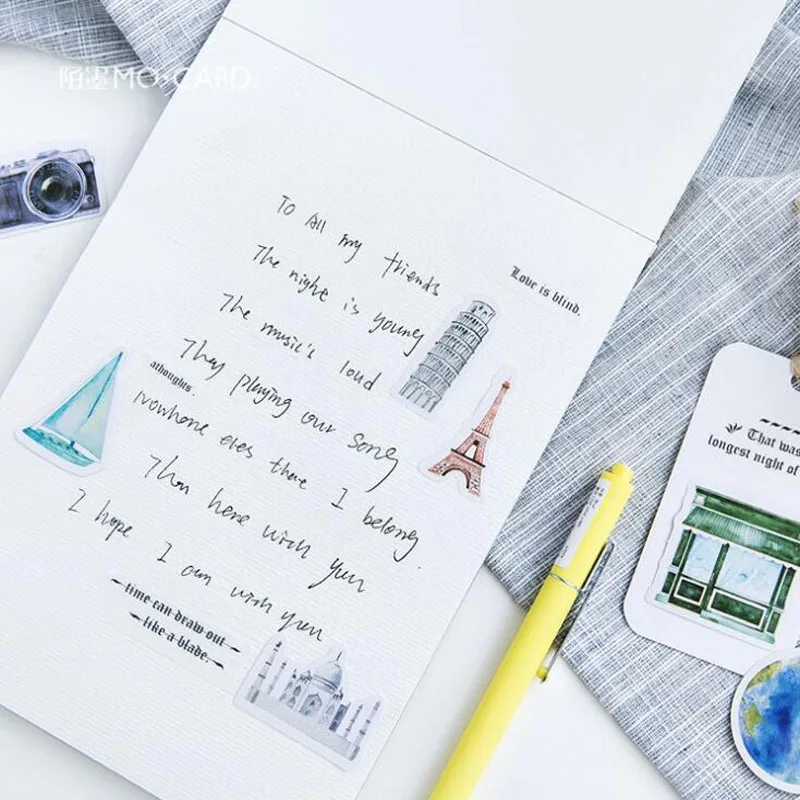 陌墨MO·CARD
To All my friends
Love is blind.
The night is young
The music's loud
They playing our song
athoughts.
Nowhere eles there I belong.
Than here with you
I hope I am with you
time can draw out
like a blade.
That was
longest night of